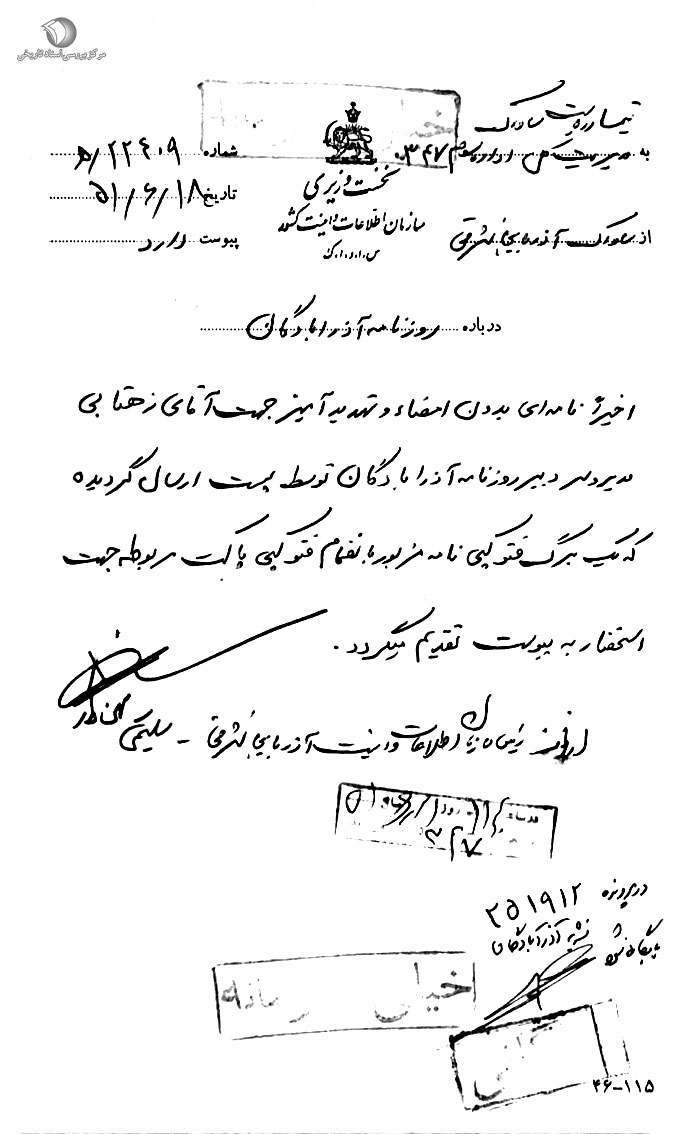 مرکز بررسی اسناد تاریخی
تیمسار ریاست ساواک
به مدیریت کل اداره سوم ۳۴۷
از ساواک آذربایجانشرقی
نخست وزیری
سازمان اطلاعات و امنیت کشور
س.ا.و.ا.ک
شماره ۵/۲۲۴۰۹
تاریخ ۵۱/۶/۱۸
پیوست دارد
درباره روزنامه آذرابادگان
اخیراً نامه‌ای بدون امضاء و تهدید آمیز جهت آقای زهتابی
مدیر و سردبیر روزنامه آذرابادگان توسط پست ارسال گردیده
که یک برگ فتوکپی نامه مزبور بانضمام فتوکپی پاکت مربوطه جهت
استحضار به پیوست تقدیم میگردد.
از طرف رئیس سازمان اطلاعات و امنیت آذربایجانشرقی - سلیمی
۳۴۷
در پرونده ۲۵۱۹۱۲
نشریه آذرآبادگان
بایگانی شود
خیلی محرمانه
۴۶-۱۱۵